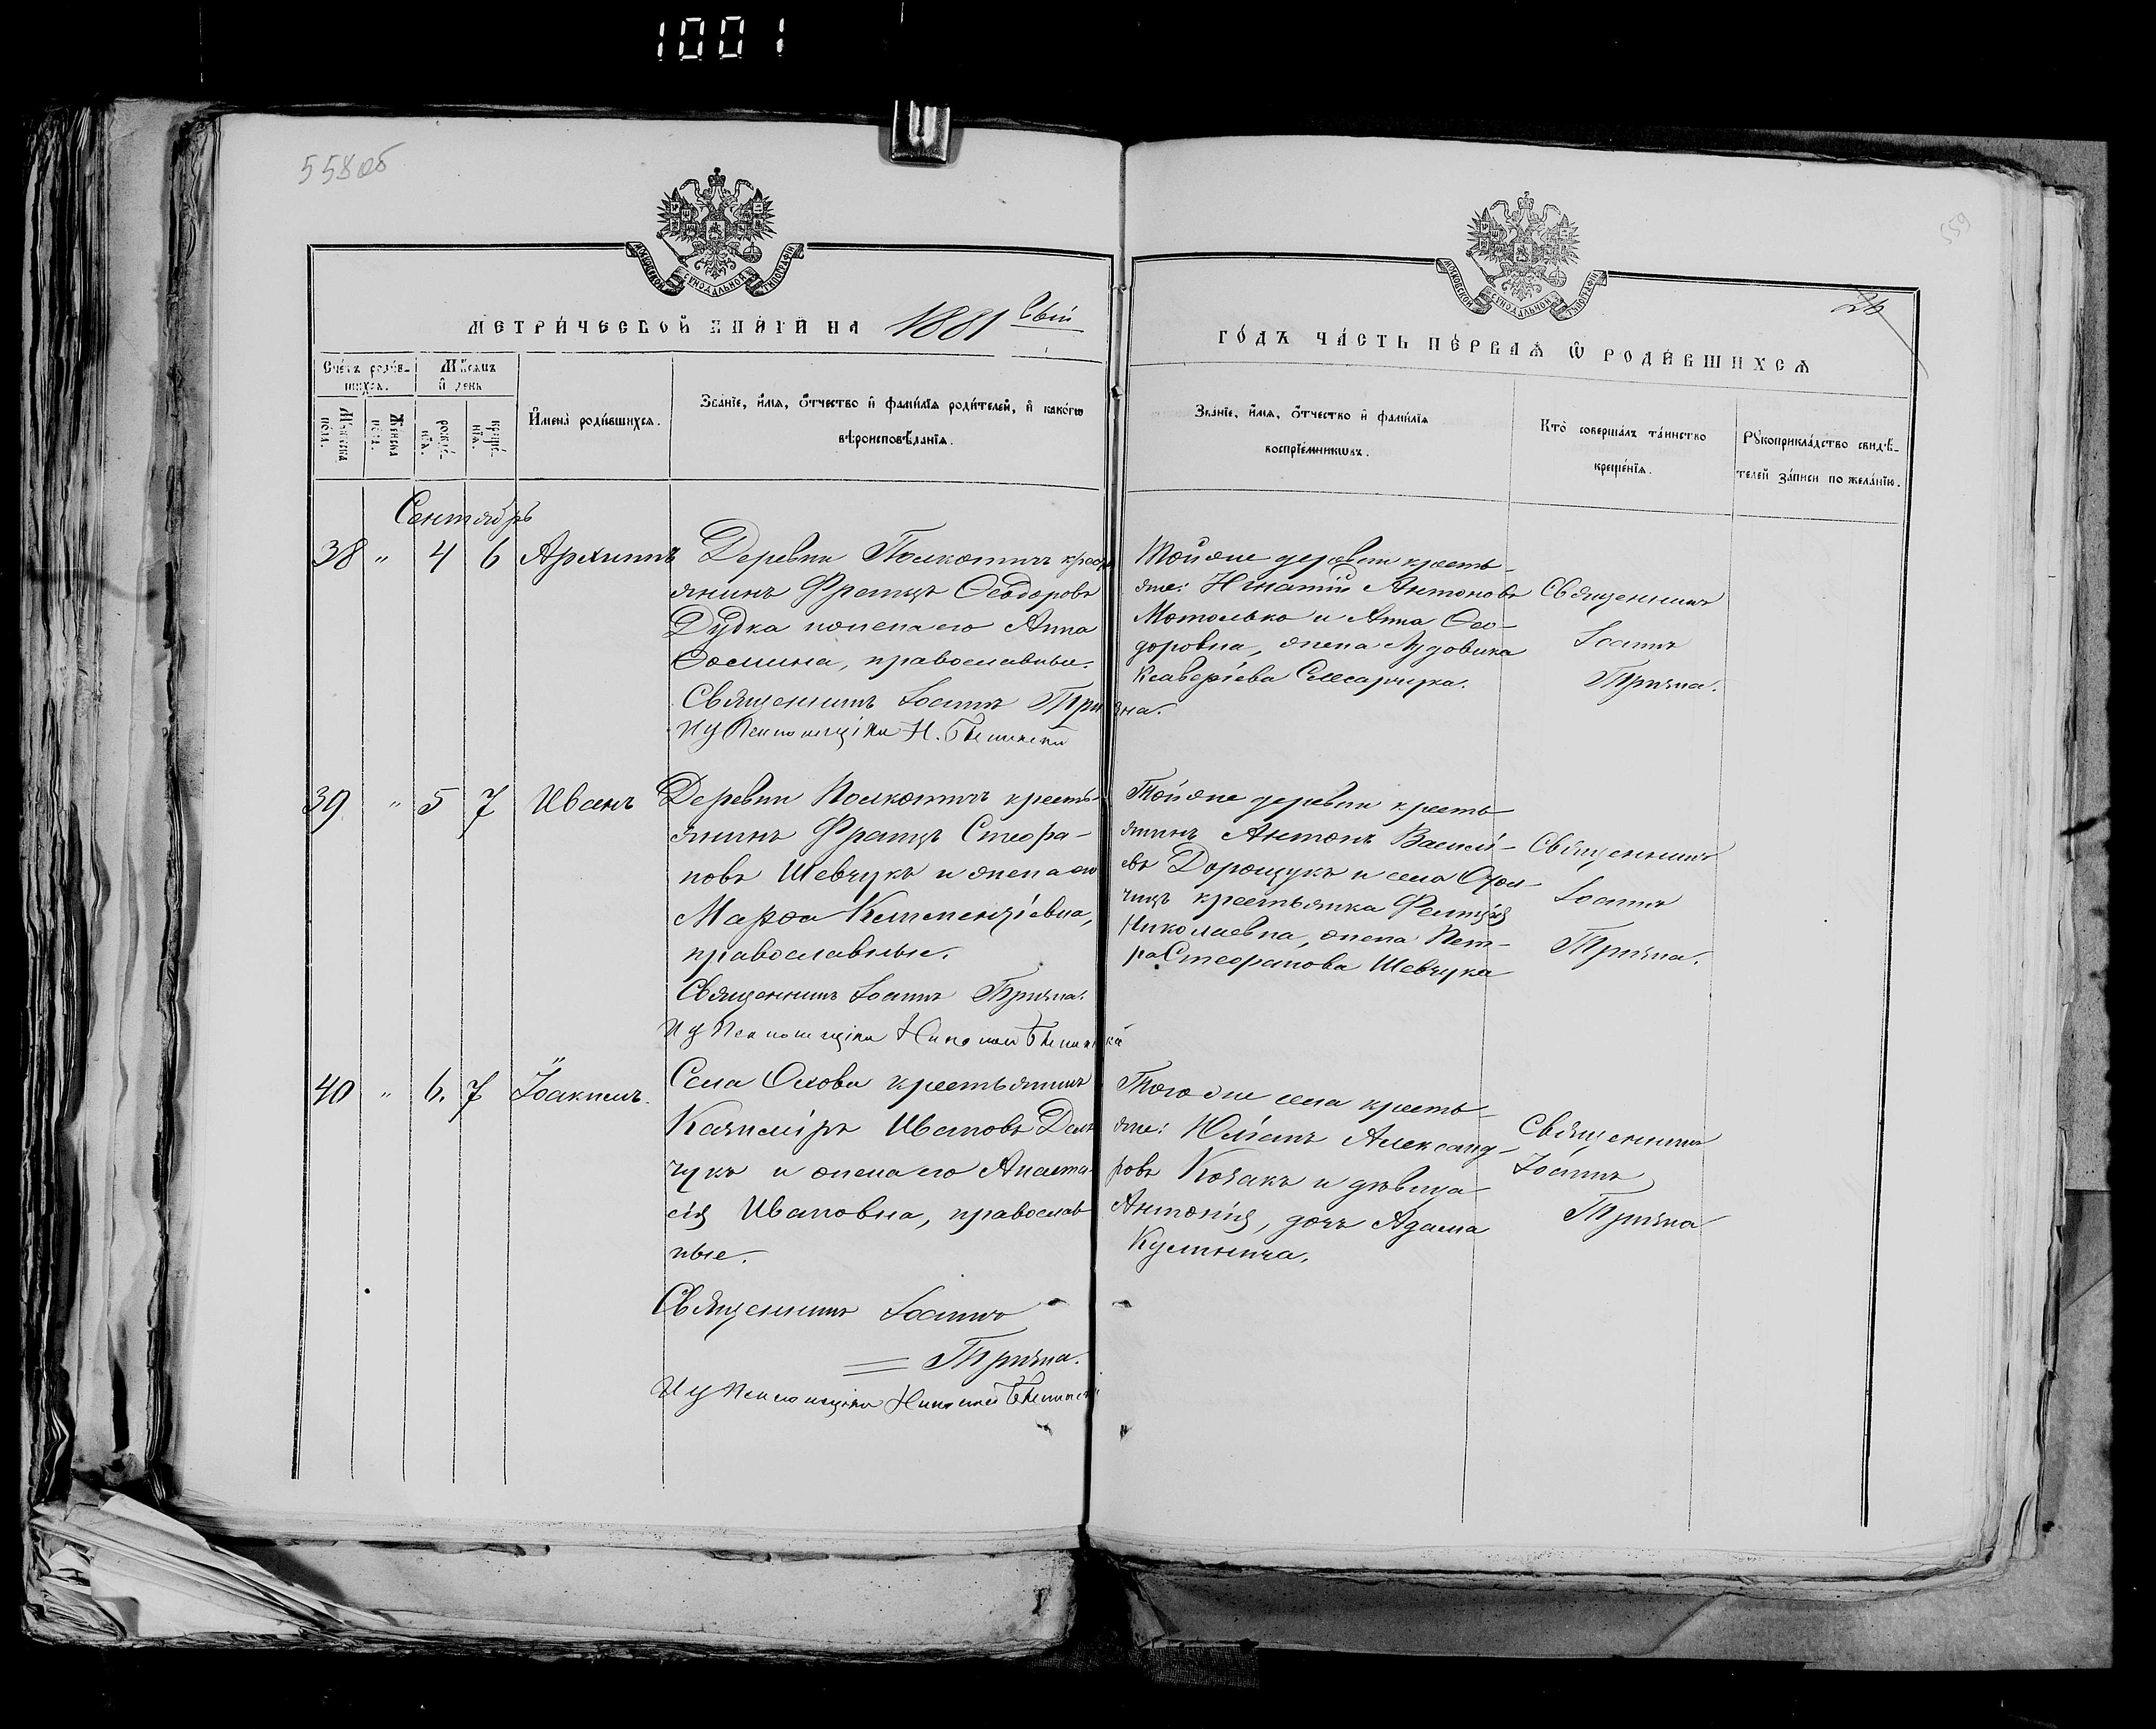 1001
558об
559
МОСКОВСКОЙ СѴНОДАЛЬНОЙ ТИПОГРАФІИ
МОСКОВСКОЙ СѴНОДАЛЬНОЙ ТИПОГРАФІИ
МЕТРИ́ЧЕСКОЙ КНИ́ГИ НА 1881 Свій
26
ГО́ДЪ ЧА́СТЬ ПЕ́РВАѦ Ѡ РОДИ́ВШИХСѦ
Сче́тъ роди́в-
шихсѧ.
Мѣ́сѧцъ
и҆ день
Мꙋжеска
по́ла.
Же́нска
по́ла.
рожде́-
нїѧ.
креще́-
нїѧ.
И҆мена̀ роди́вшихсѧ.
Зва́нїе, и҆́мѧ, ѻ҆́тчество и҆ фами́лїѧ роди́телей, и҆ како́гѡ
вѣроисповѣ́данїѧ.
Зва́нїе, и҆́мѧ, ѻ҆́тчество и҆ фами́лїѧ
воспрїе́мникѡвъ.
Кто̀ соверша́лъ та́инство
креще́нїѧ.
Рꙋкоприкла́дство свидѣ́-
телей за́писи по жела́нїю.
Сентябрь
38 " 4 6 Архиппъ
Деревни Полкотичъ крест
янинъ Францъ Ѳеодоровъ
Дудка и жена его Анна
Ѳомина, православные.
Священникъ Іоаннъ Тризна.
И. д. Псаломщика Н.
Тойже деревни кресть-
яне: Игнатій Антоновъ
Мотолько и Анна Ѳео-
доровна, жена Лудовика
Ксаверіева Слесарчука.
Священникъ
Іоаннъ
Тризна.
39 " 5 7 Иванъ
Деревни Полкотичъ кресть-
янинъ Францъ Стефа-
новъ Шевчукъ и жена его
Марѳа Климентіевна,
православные.
Священникъ Іоаннъ Тризна.
И. д. Псаломщика Николай
Тойже деревни кресть
янинъ Антонъ Василі-
евъ Дорощукъ и села
крестьянка
Николаевна, жена Пет-
ра Стефанова Шевчука
Священникъ
Іоаннъ
Тризна.
40 " 6. 7 Іоакимъ.
Села Охова крестьянинъ
Казиміръ Ивановъ
чукъ и жена его Анаста-
сія Ивановна, православ
ные.
Священникъ Іоаннъ
Тризна.
И. д. Псаломщика Николай
Тогоже села кресть-
яне: Юліанъ Александ-
ровъ Козакъ и дѣвица
Антонія, дочь Адама
Кузмича.
Священникъ
Іоаннъ
Тризна